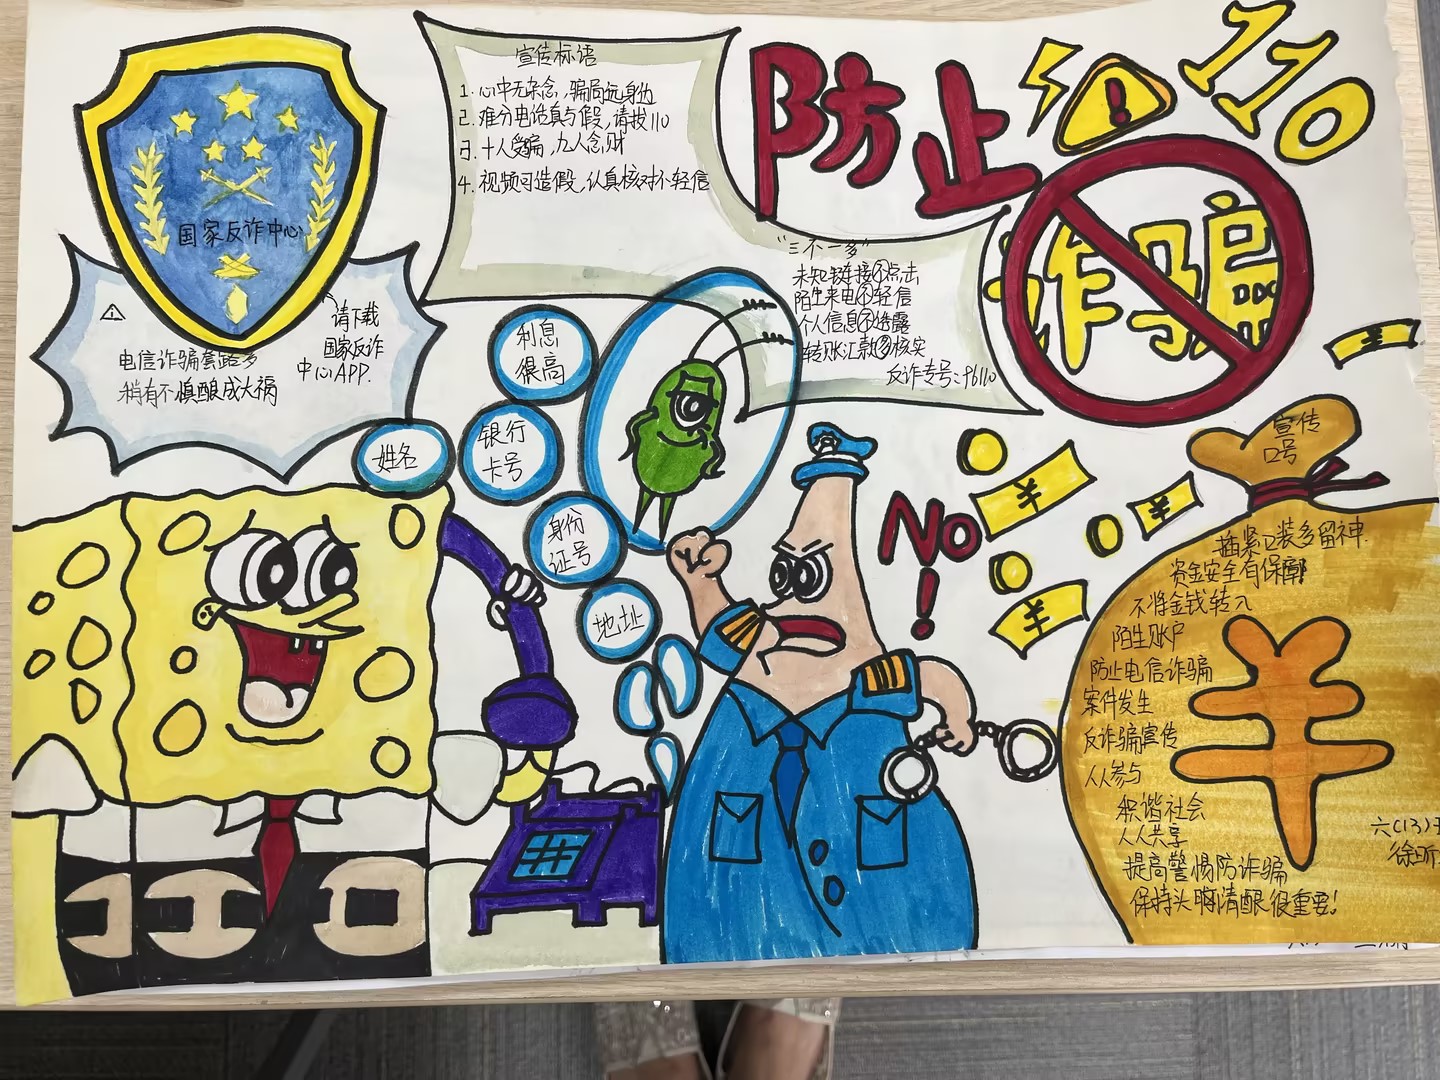 国家反诈中心
电信诈骗套路多
稍有不慎酿成大祸
请下载
国家反诈
中心APP.
宣传标语
1. 心中无杂念,骗局远身边
2. 难分电话真与假,请拨110
3. 十人受骗,九人念财
4. 视频可造假,认真核对不轻信
防止
诈骗
110
"三不一多"
未知链接不点击
陌生来电不轻信
个人信息不透露
转账汇款多核实
反诈专号:96110
利息
很高
银行
卡号
姓名
身份
证号
地址
NO!
¥
¥
¥
¥
宣传
口号
捂紧口袋多留神
资金安全有保障
不将金钱转入
陌生账户
防止电信诈骗
案件发生
反诈骗宣传
人人参与
和谐社会
人人共享
提高警惕防诈骗
保持头脑清醒很重要!
六(13)
徐昕